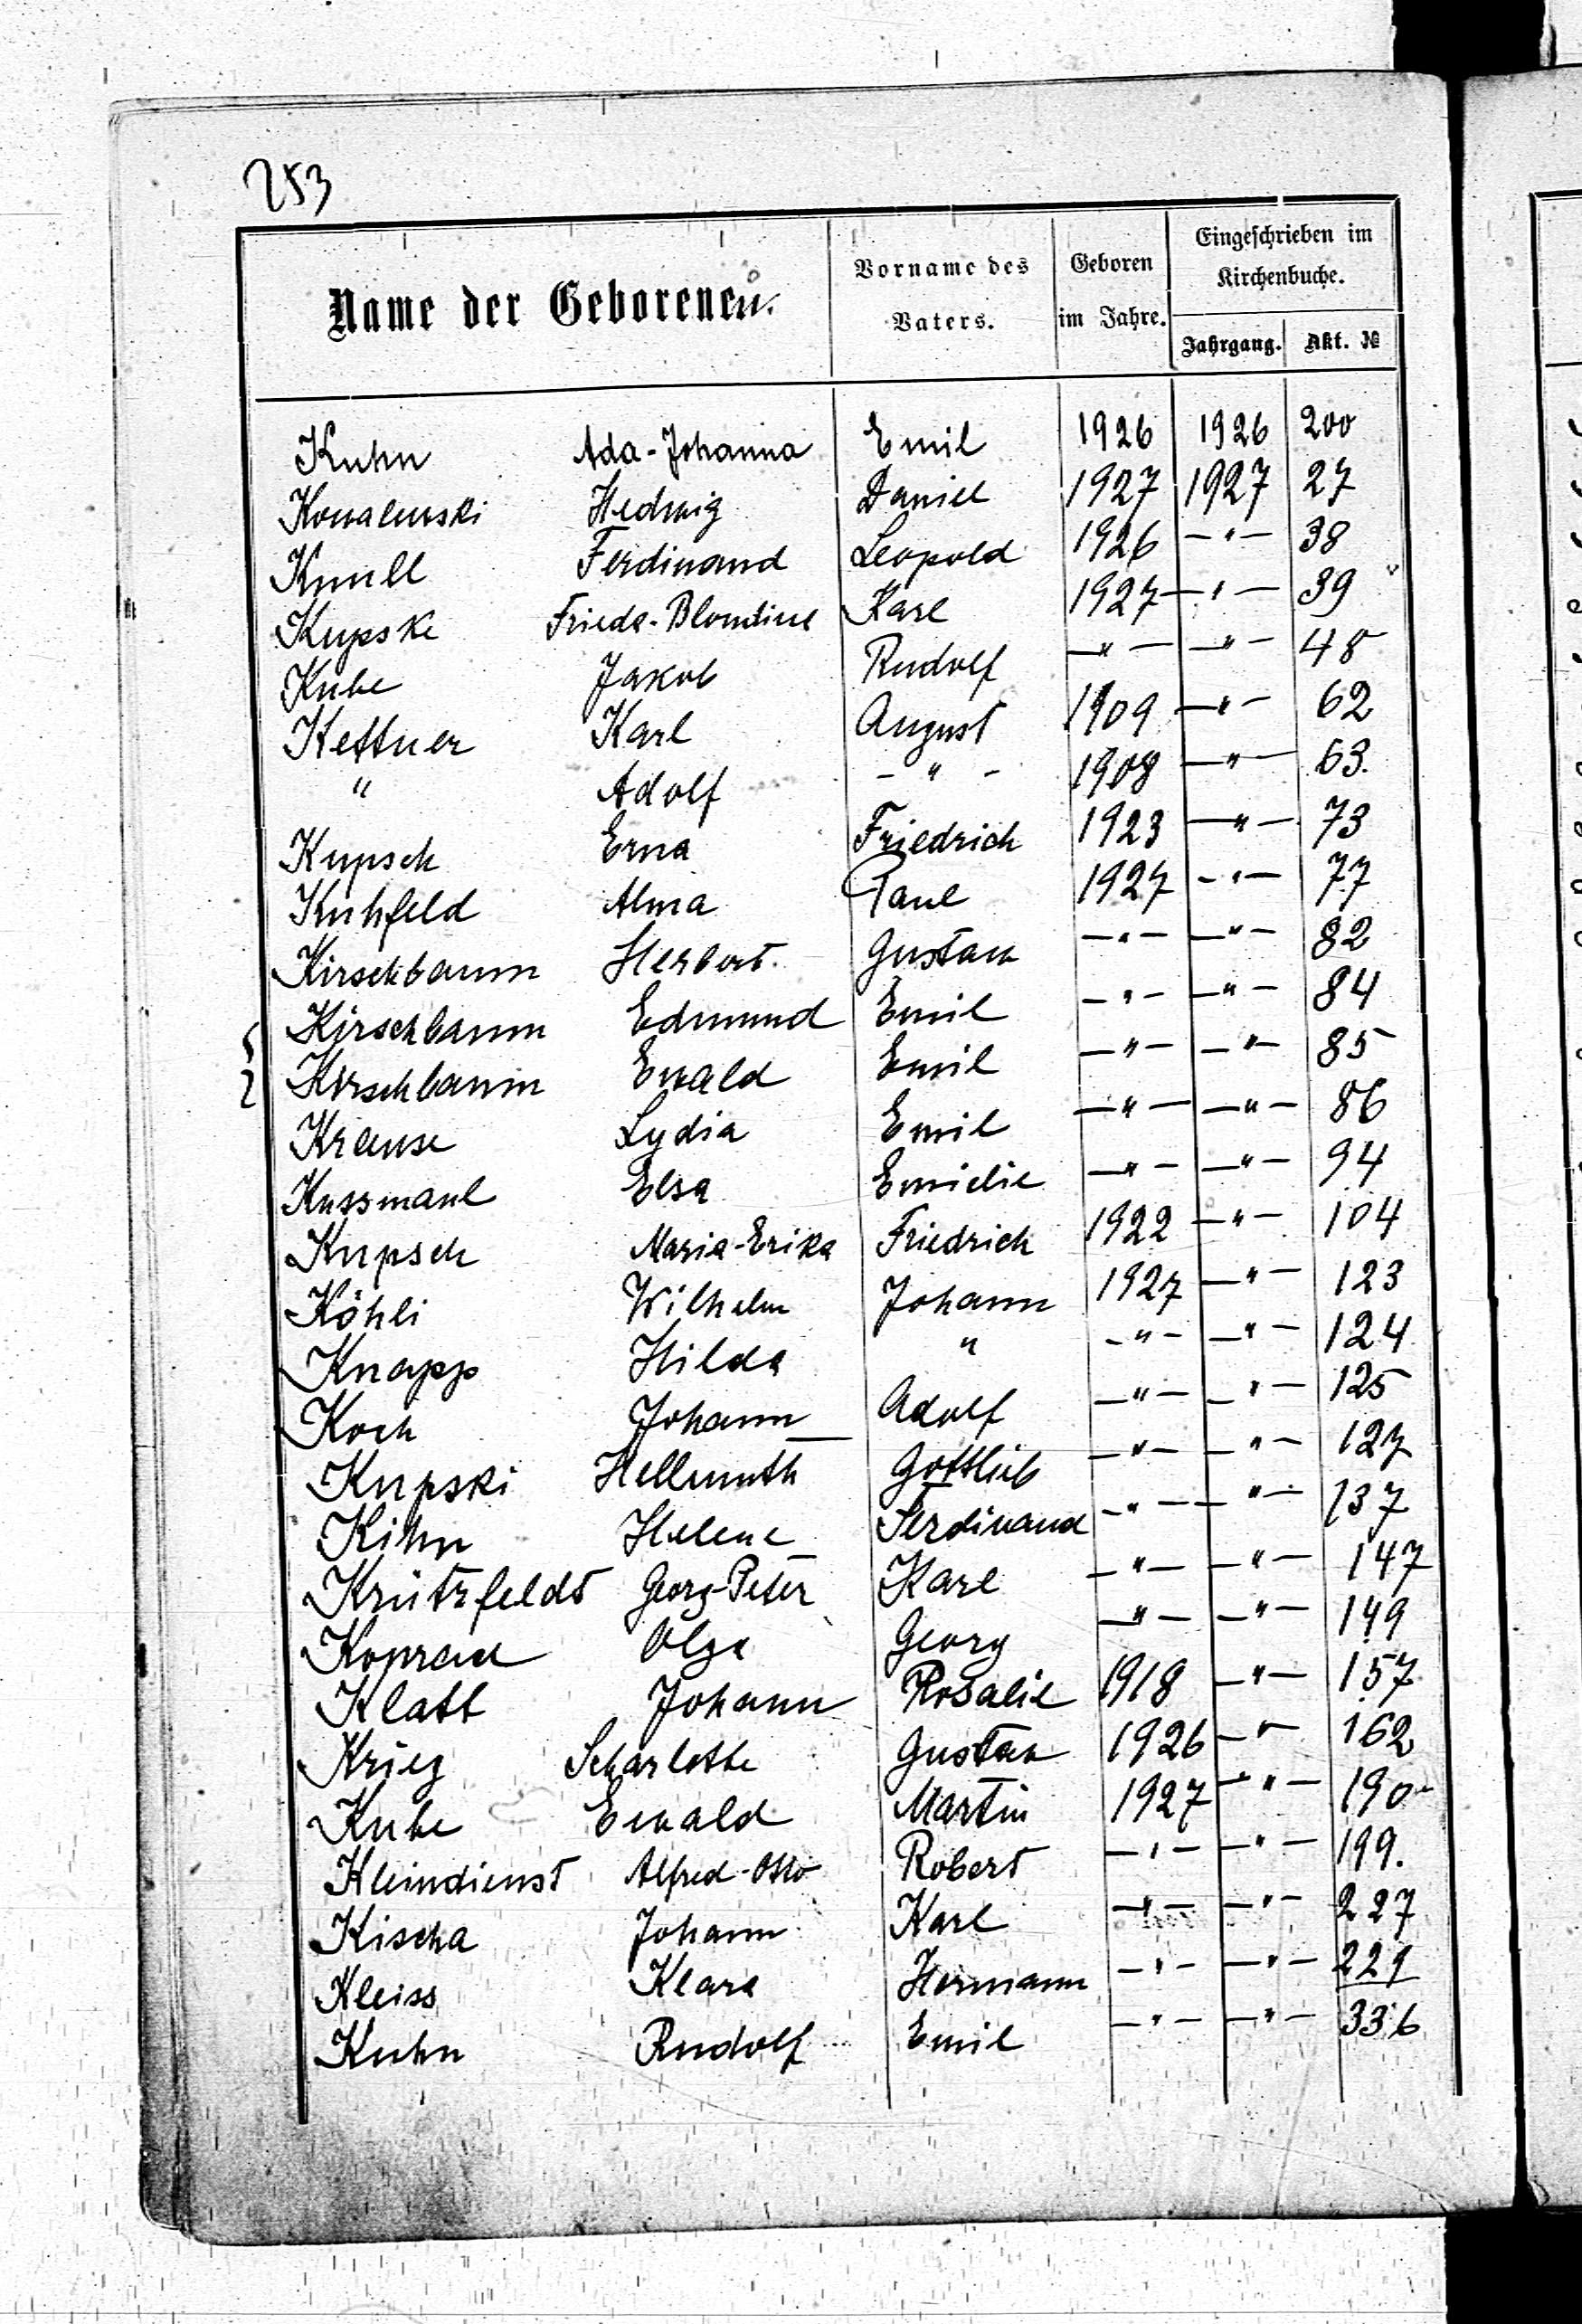 253
Name der Geborenen.
Vorname des Vaters.
Geboren im Jahre.
Eingeschrieben im Kirchenbuche.
Jahrgang. Akt. №
Kuhn Ada-Johanna Emil 1926 1926 200
Kowalewski Hedwig Daniel 1927 1927 27
Knull Ferdinand Leopold 1926 -"- 38
Kupske Frieda-Blondine Karl 1927 -"- 39
Kube Jakob Rudolf -"- -"- 48
Kettner Karl August 1909 -"- 62
" Adolf -"- 1908 -"- 63.
Kupsch Erna Friedrich 1923 -"- 73
Kuhfeld Alma Paul 1927 -"- 77
Kirschbaum Herbert. Gustav -"- -"- 82
Kirschbaum Edmund Emil -"- -"- 84
Kirschbaum Ewald Emil -"- -"- 85
Krause Lydia Emil -"- -"- 86
Kussmaul Elsa Emilie -"- -"- 94
Kupsch Maria-Erika Friedrich 1922 -"- 104
Köhli Wilhelm Johann 1927 -"- 123
Knapp Hilda " -"- -"- 124
Koch Johann Adolf -"- -"- 125
Kupski Hellmuth Gottlieb -"- -"- 127
Kihn Helene Ferdinand -"- -"- 137
Krützfeldt Georg-Peter Karl -"- -"- 147
Koprad Olga Georg -"- -"- 149
Klatt Johann Rosalie 1918 -"- 157
Krieg Scharlotte Gustav 1926 -"- 162
Kube Ewald Martin 1927 -"- 190
Kleindienst Alfred-Otto Robert -"- -"- 199.
Kischa Johann Karl -"- -"- 227
Kleiss Klara Hermann -"- -"- 229
Kuhn Rudolf Emil -"- -"- 336